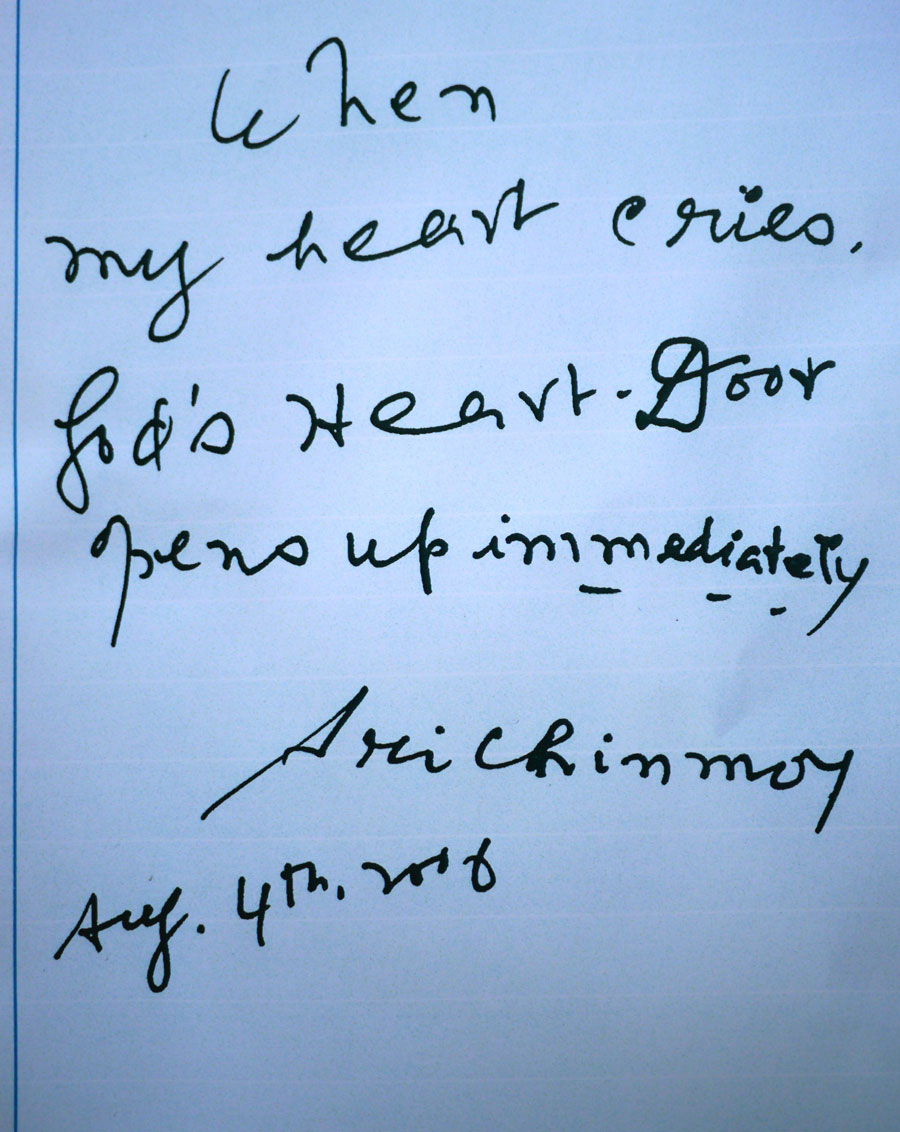 When
my heart cries,
God's Heart-Door
opens up immediately
Sri Chinmoy
Aug. 4th, 2006